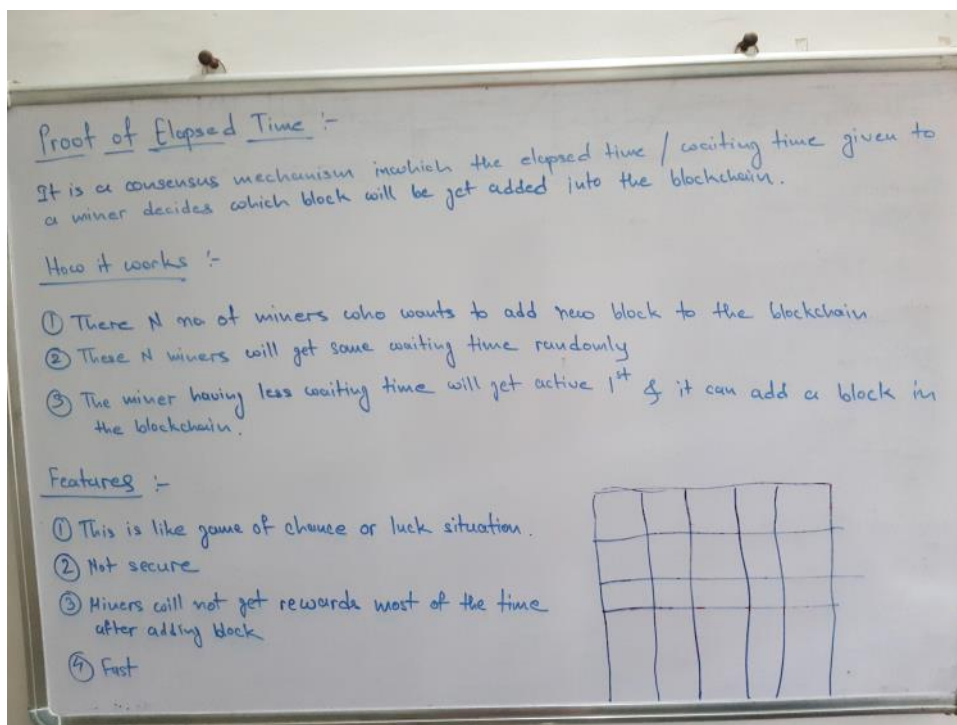 Proof of Elapsed Time :-
It is a consensus mechanism inwhich the elapsed time / waiting time given to
a miner decides which block will be get added into the blockchain.
How it works :-
① There N no of miners who wants to add new block to the blockchain
② These N miners will get some waiting time randomly
③ The miner having less waiting time will get active 1st & it can add a block in
the blockchain.
Features :-
① This is like game of chance or luck situation.
② Not secure
③ Miners will not get rewards most of the time
after adding block
④ Fast